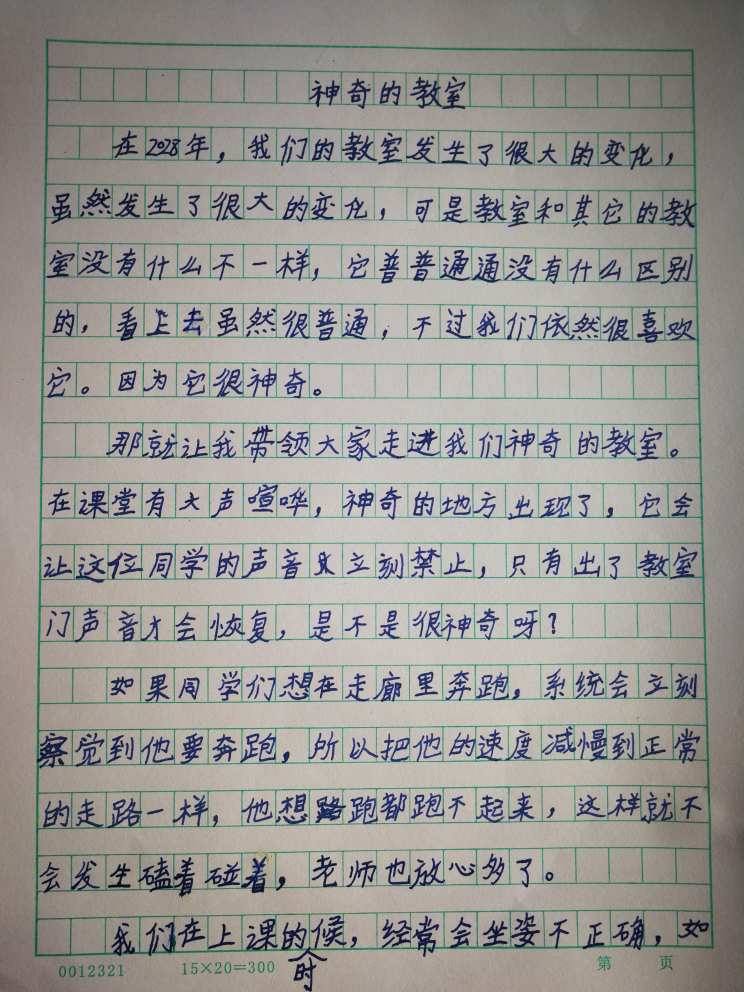 神奇的教室
在2028年，我们的教室发生了很大的变化，
虽然发生了很大的变化，可是教室和其它的教
室没有什么不一样，它普普通通没有什么区别
的，看上去虽然很普通，不过我们依然很喜欢
它。因为它很神奇。
那就让我带领大家走进我们神奇的教室。
在课堂有大声喧哗，神奇的地方出现了，它会
让这位同学的声音立刻禁止，只有出了教室
门声音才会恢复，是不是很神奇呀？
如果同学们想在走廊里奔跑，系统会立刻
察觉到他要奔跑，所以把他的速度减慢到正常
的走路一样，他想跑都跑不起来，这样就不
会发生磕着碰着，老师也放心多了。
我们在上课的候，经常会坐姿不正确，如
时
0012321 15×20=300 第 页